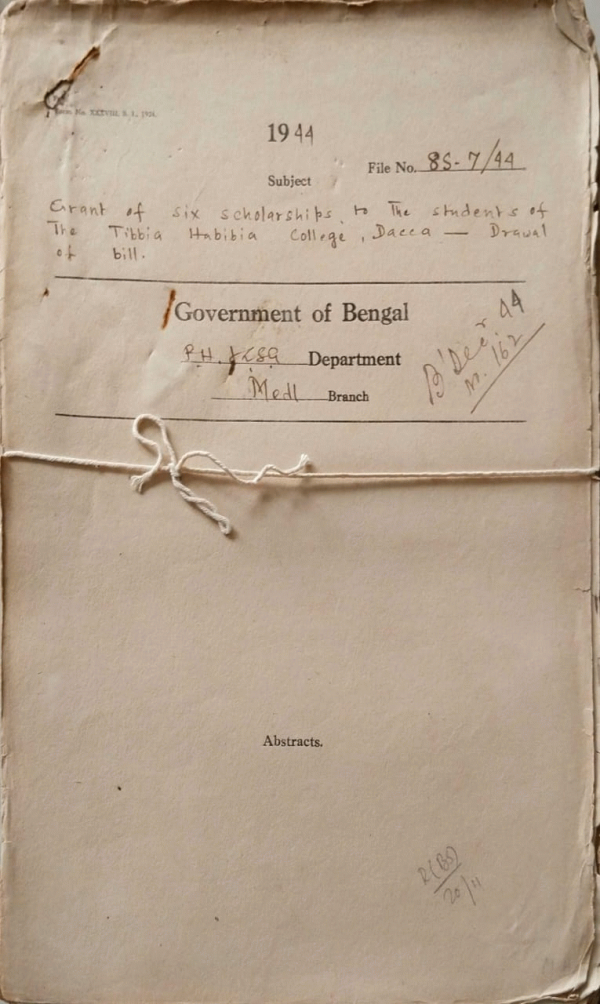 1944
File No. 8S-7/44
Subject
Grant of six scholarships to The students of
The Tibbia Habibia College, Dacca — Drawal
of bill.
Government of Bengal
P.H. & LSG Department
Medl Branch
B' Decr 44
N. 162
Abstracts.
20/11